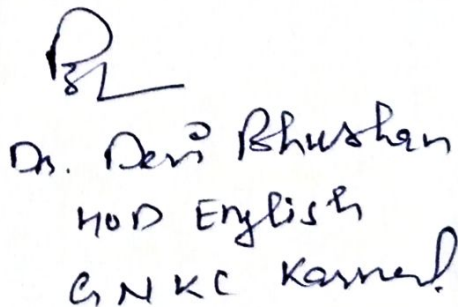 Dr. Devi Bhushan
HOD English
GNKC Karnal